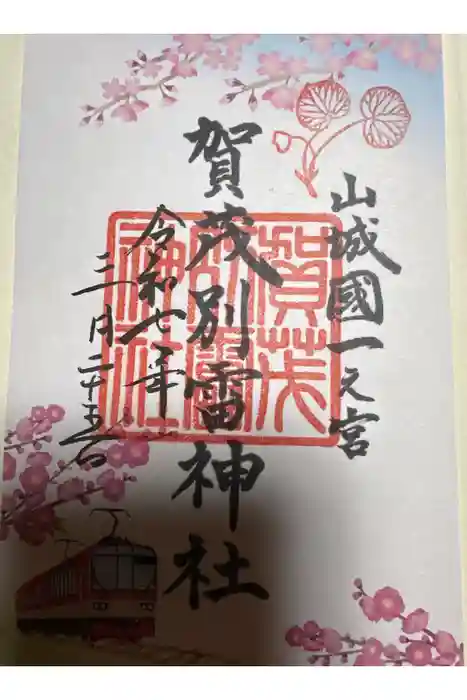 山城國一之宮
賀茂別雷神社
令和七年
三月二十五日
賀茂
別雷
神社